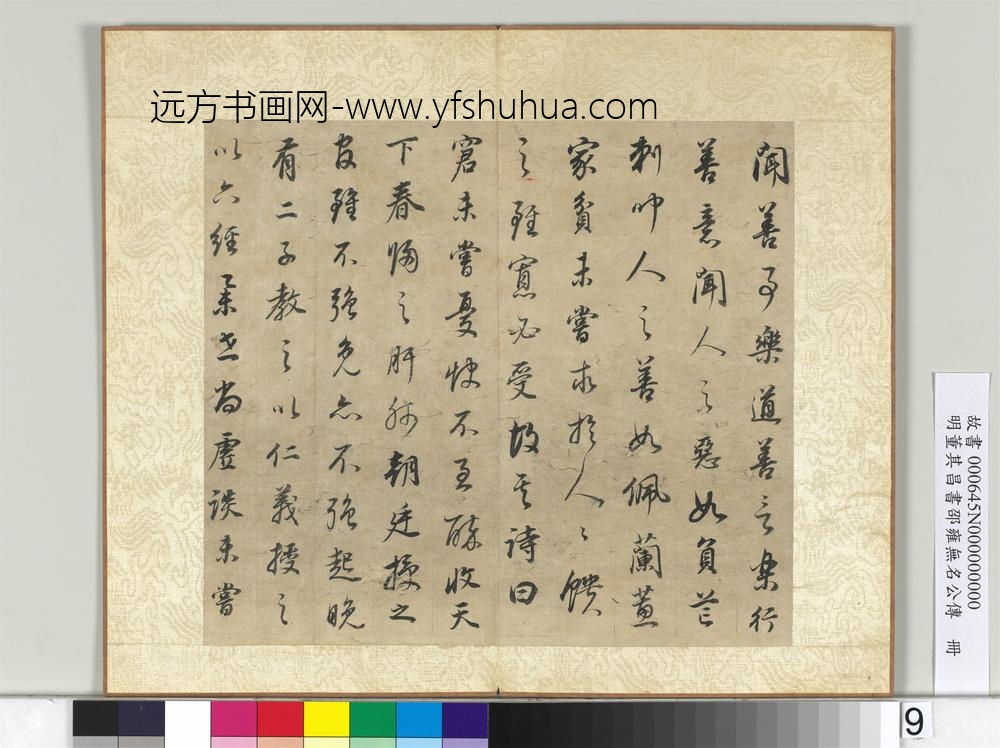 远方书画网-www.yfshuhua.com
聞善事樂道善言樂行
善意聞人之惡如負芒
刺聞人之善如佩蘭蕙
家貧未嘗求於人人饋
之雖寡必受故其詩曰
窘未嘗憂飲不至醉收天
下春歸之肝肺朝廷授之
官雖不強免亦不強起晚
有二子教之以仁義授之
以六經舉世尚虛談未嘗
故書 000645N000000000
明董其昌書邵雍無名公傳 冊
9